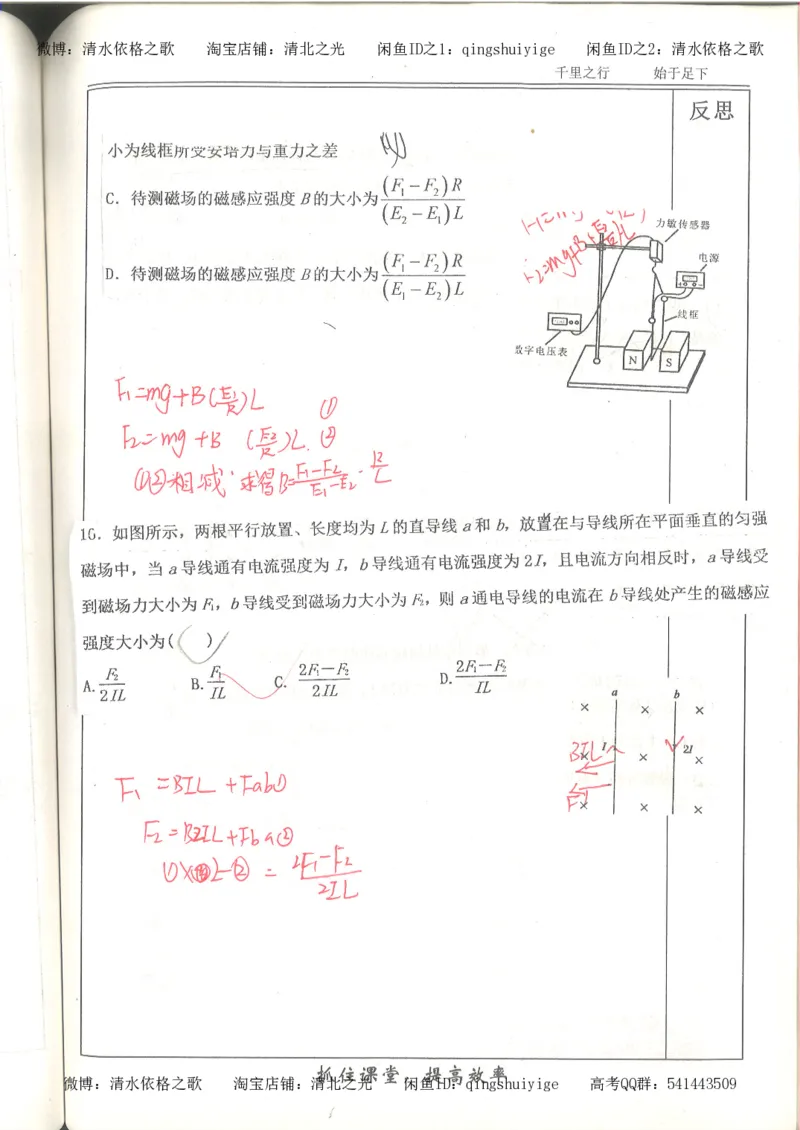 微博：清水依格之歌 淘宝店铺：清北之光 闲鱼ID之1：qingshuiyige 闲鱼ID之2：清水依格之歌
千里之行 始于足下
反思
小为线框所受安培力与重力之差
C. 待测磁场的磁感应强度 B 的大小为 (F₁−F₂)R / (E₂−E₁)L
D. 待测磁场的磁感应强度 B 的大小为 (F₁−F₂)R / (E₁−E₂)L
力敏传感器
电源
线框
数字电压表
N S
F₂=mg+B
F₁=mg+B(E₁/R)L ①
F₂=mg+B(E₂/R)L ②
①②相减，求得B=(F₁−F₂)/(E₁−E₂)·R/L
16. 如图所示，两根平行放置、长度均为 L 的直导线 a 和 b，放置在与导线所在平面垂直的匀强
磁场中，当 a 导线通有电流强度为 I，b 导线通有电流强度为 2I，且电流方向相反时，a 导线受
到磁场力大小为 F₁，b 导线受到磁场力大小为 F₂，则 a 通电导线的电流在 b 导线处产生的磁感应
强度大小为( )
A. F₂/2IL B. F₁/IL C. (2F₁−F₂)/2IL D. (2F₁−F₂)/IL
a b
I 2I
BIL
F
F₁=BIL+Fab①
F₂=B2IL+Fba②
①×2−② = (2F₁−F₂)/2IL
抓住课堂，提高效率
微博：清水依格之歌 淘宝店铺：清北之光 闲鱼ID：qingshuiyige 高考QQ群：541443509